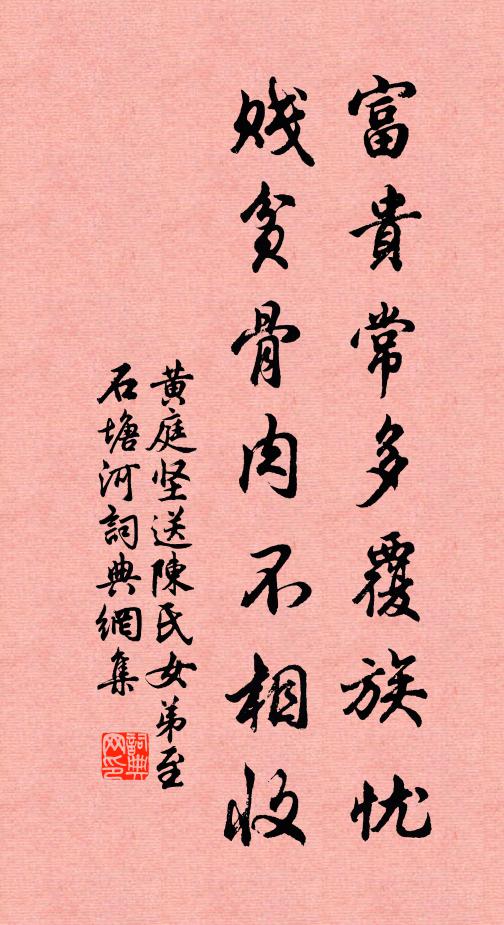 富貴常多覆族忧
贱贫骨肉不相收
黄庭坚送陳氏女弟至
石塘河詞典網集
詞典网印